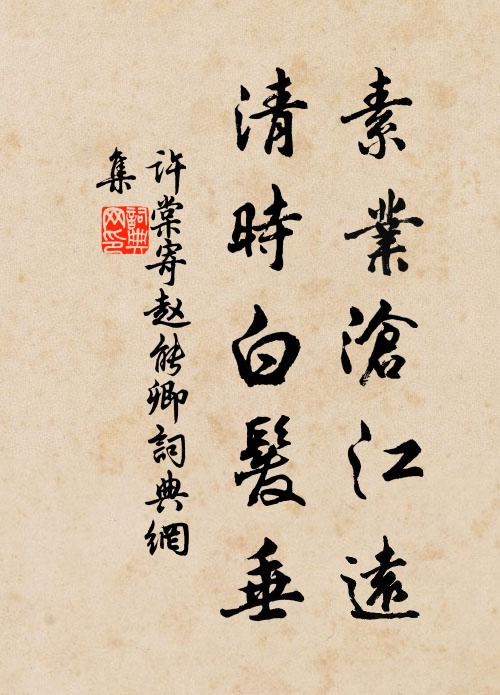 素業滄江遠
清時白髮垂
許棠寄赵能卿詞典網
集
詞典網印